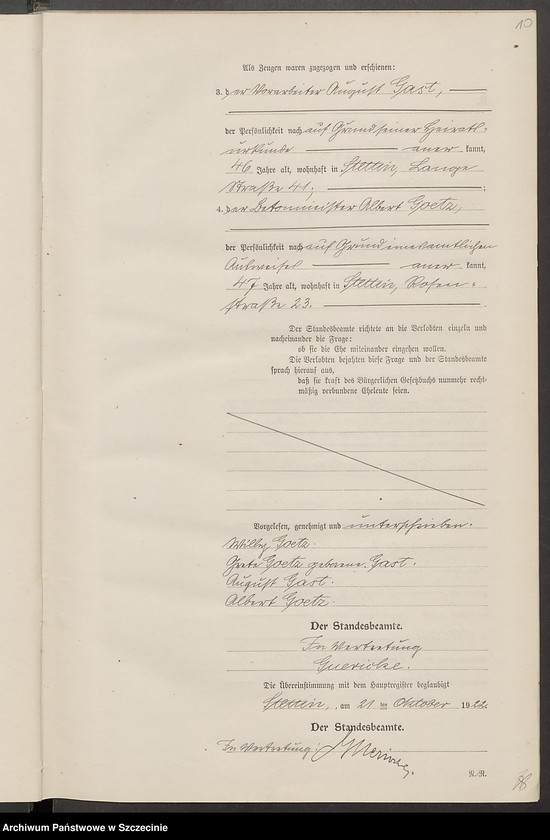 10
Als Zeugen waren zugezogen und erschienen:
3. der Vorarbeiter August Gast,
der Persönlichkeit nach auf Grund seiner Heirats-
urkunde aner kannt,
46 Jahre alt, wohnhaft in Stettin, Lange
Straße 41;
4. der Betonmeister Albert Goetz,
der Persönlichkeit nach auf Grund eines amtlichen
Ausweises aner kannt,
47 Jahre alt, wohnhaft in Stettin, Rosen-
straße 23.
Der Standesbeamte richtete an die Verlobten einzeln und
nacheinander die Frage:
ob sie die Ehe miteinander eingehen wollen.
Die Verlobten bejahten diese Frage und der Standesbeamte
sprach hierauf aus,
daß sie kraft des Bürgerlichen Gesetzbuchs nunmehr recht-
mäßig verbundene Eheleute seien.
Vorgelesen, genehmigt und unterschrieben.
Willy Goetz.
Grete Goetz geborene Gast.
August Gast.
Albert Goetz.
Der Standesbeamte.
In Vertretung
Guericke.
Die Übereinstimmung mit dem Hauptregister beglaubigt
Stettin, am 21 ten Oktober 1922.
Der Standesbeamte.
In Vertretung:
N.-R.
Archiwum Państwowe w Szczecinie